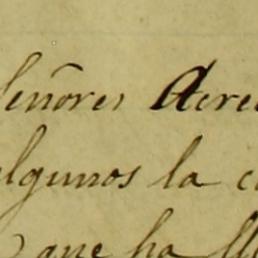 Señores Acree
algunos la c
que ha ll